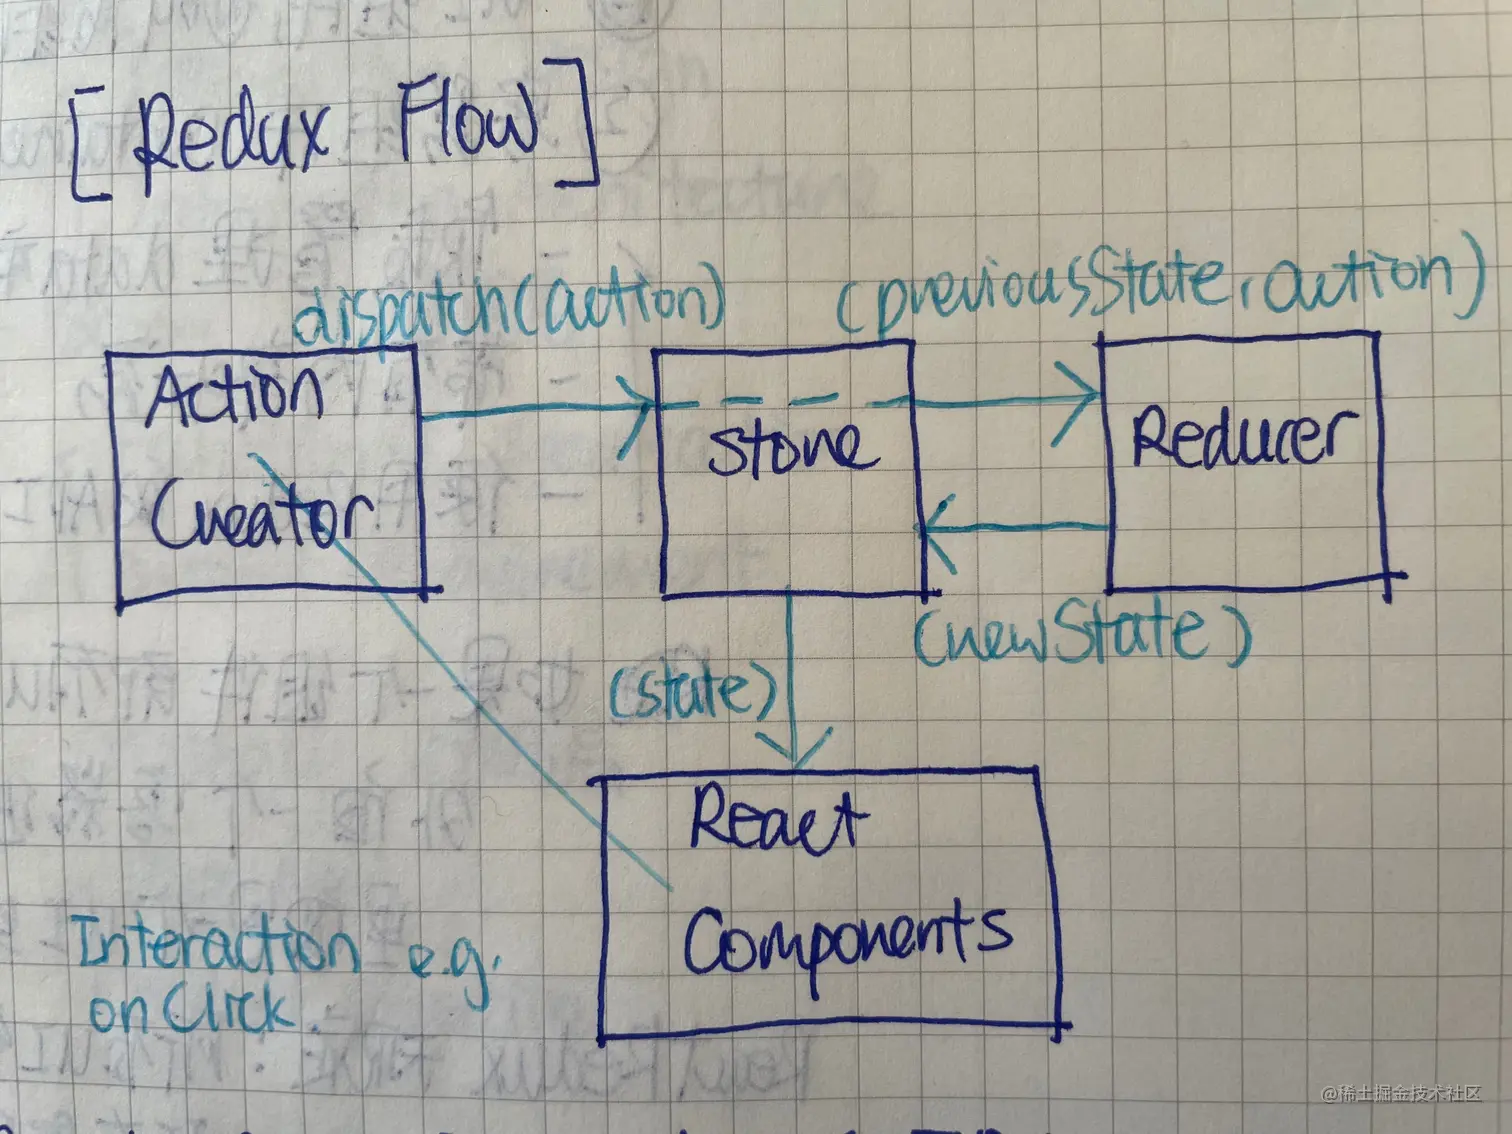 [Redux Flow]
dispatch(action)
(previousState, action)
Action
Creator
Store
Reducer
(newState)
(state)
React
Components
Interaction e.g.
onClick.
@稀土掘金技术社区